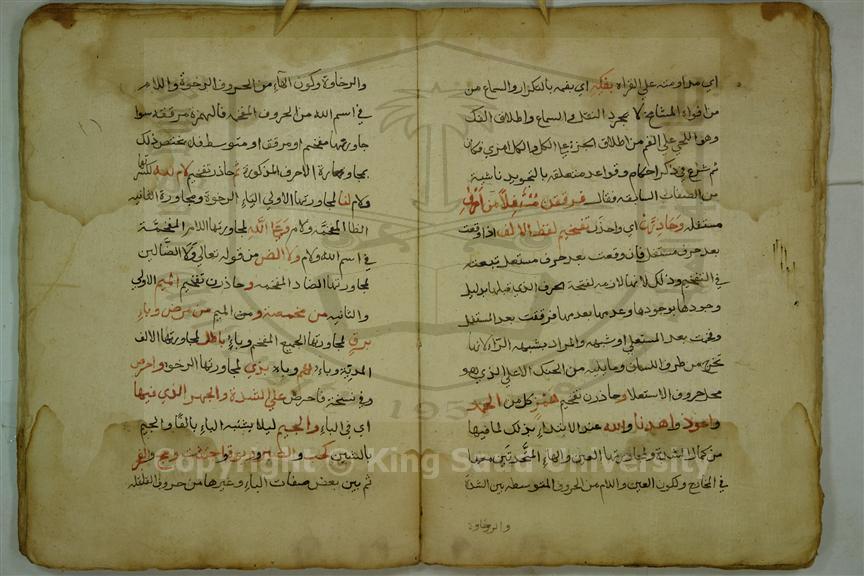 اي مداومته علي القراة بفكه اي بفمه بالتكرار والسماع من
من افواه المشايخ لا بمجرد النقل والسماع واطلاق الفك
وهو اللحي علي الفم من اطلاق الجزء علي الكل والكل امري فكان
ثم شرع في ذكر احكام وقواعد متعلقة بالتجويد ناشية
من الصفات السابقة فقال فرققن مستفلا من احرف
مستفله وحاذرن اي واحذرن تفخيم لفظ الالف اذا وقعت
بعد حرف مستفل فان وقعت بعد حرف مستعل تبعته
في التفخيم وذلك لانها لازمة لفتحة الحرف الذي قبلها بدليل
وجودها بوجودها وعدمها بعدمها فرققت بعد المستفل
وفخمت بعد المستعلي او شبهه والمراد بشبهه الراء لانها
تخرج من طرف اللسان وما يليه من الحنك الاعلي الذي هو
محل حروف الاستعلا وحاذرن تفخيم همز كل من الحمد
واعوذ واهدنا والله عند الابتداء بذلك لما فيها
من كمال الشدة ولمجاورتها العين والهاء المتحدتين معها
في المخارج ولكون العين واللام من الحروف المتوسطه بين الشدة
والرخاوة
والرخاوة وكون الهاء من الحروف الرخوة واللام
في اسم الله من الحروف المفخمة فالهمزة مرققة سوا
جاورها مفخم او مرقق او متوسط فلا يختص ذلك
بمجاورة الاحرف المذكورة ثم حاذرن تفخيم لام لله لكسرتها
ولام لنا لمجاورتها الاولي الياء الرخوة ومجاورة الثانية
الطا المفخمة ولام وعلي الله لمجاورتها اللام المفخمة
في اسم الله ولام ولا الض من قوله تعالي ولا الضالين
لمجاورتها الضاد المفخمة وحاذرن تفخيم الميم الاولي
والثانية من مخمصة ومن الميم من مرض وباء
برق لمجاورتها الجميع المفخم وباء باطل لمجاورتها الالف
المدية وباء بهم وباء بذي لمجاورتها الرخو واحرص
وفي نسخة فاحرص علي الشدة والجهر الذي فيها
اي في الباء والجيم ليلا يشتبه الباء بالفا والجيم
بالشين كحب والصبر وربوة اجتثت وحج والفجر
ثم بين بعض صفات الباء وغيرها من حروف القلقلة
Copyright © King Saud University
1957